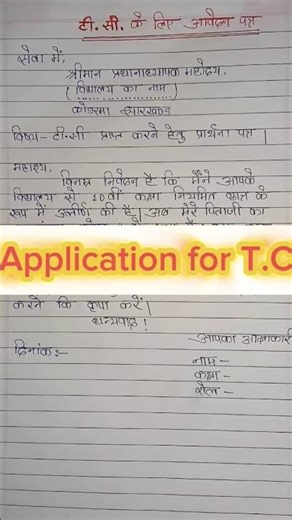 टी. सी. के लिए आवेदन पत्र
सेवा में,
श्रीमान प्रधानाध्यापक महोदय,
(विद्यालय का नाम)
कोडरमा झारखण्ड
विषय- टी.सी प्राप्त करने हेतु प्रार्थना पत्र |
महाशय,
विनम्र निवेदन है कि मैंने आपके
विद्यालय से 10वीं कक्षा नियमित छात्र के
रूप में उत्तीर्ण की है| अब मेरे पिताजी का
Application for T.C
करने कि कृपा करें|
धन्यवाद !
आपका आज्ञाकारी
दिनांक:-
नाम -
कक्षा -
रौल -